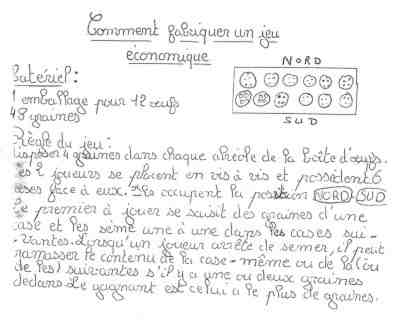 Comment fabriquer un jeu
économique
NORD
Matériel :
1 emballage pour 12 œufs
48 graines
SUD
Règle du jeu :
Disposer 4 graines dans chaque alvéole de la boîte d'œufs.
Les 2 joueurs se placent en vis à vis et possèdent 6
cases face à eux. Ils occupent la position NORD - SUD
Le premier à jouer se saisit des graines d'une
case et les sème une à une dans les cases sui-
vantes. Lorsqu'un joueur arrête de semer, il peut
ramasser le contenu de la case-même ou de la (ou
de les) suivantes s'il y a une ou deux graines
dedans. Le gagnant est celui a le plus de graines.